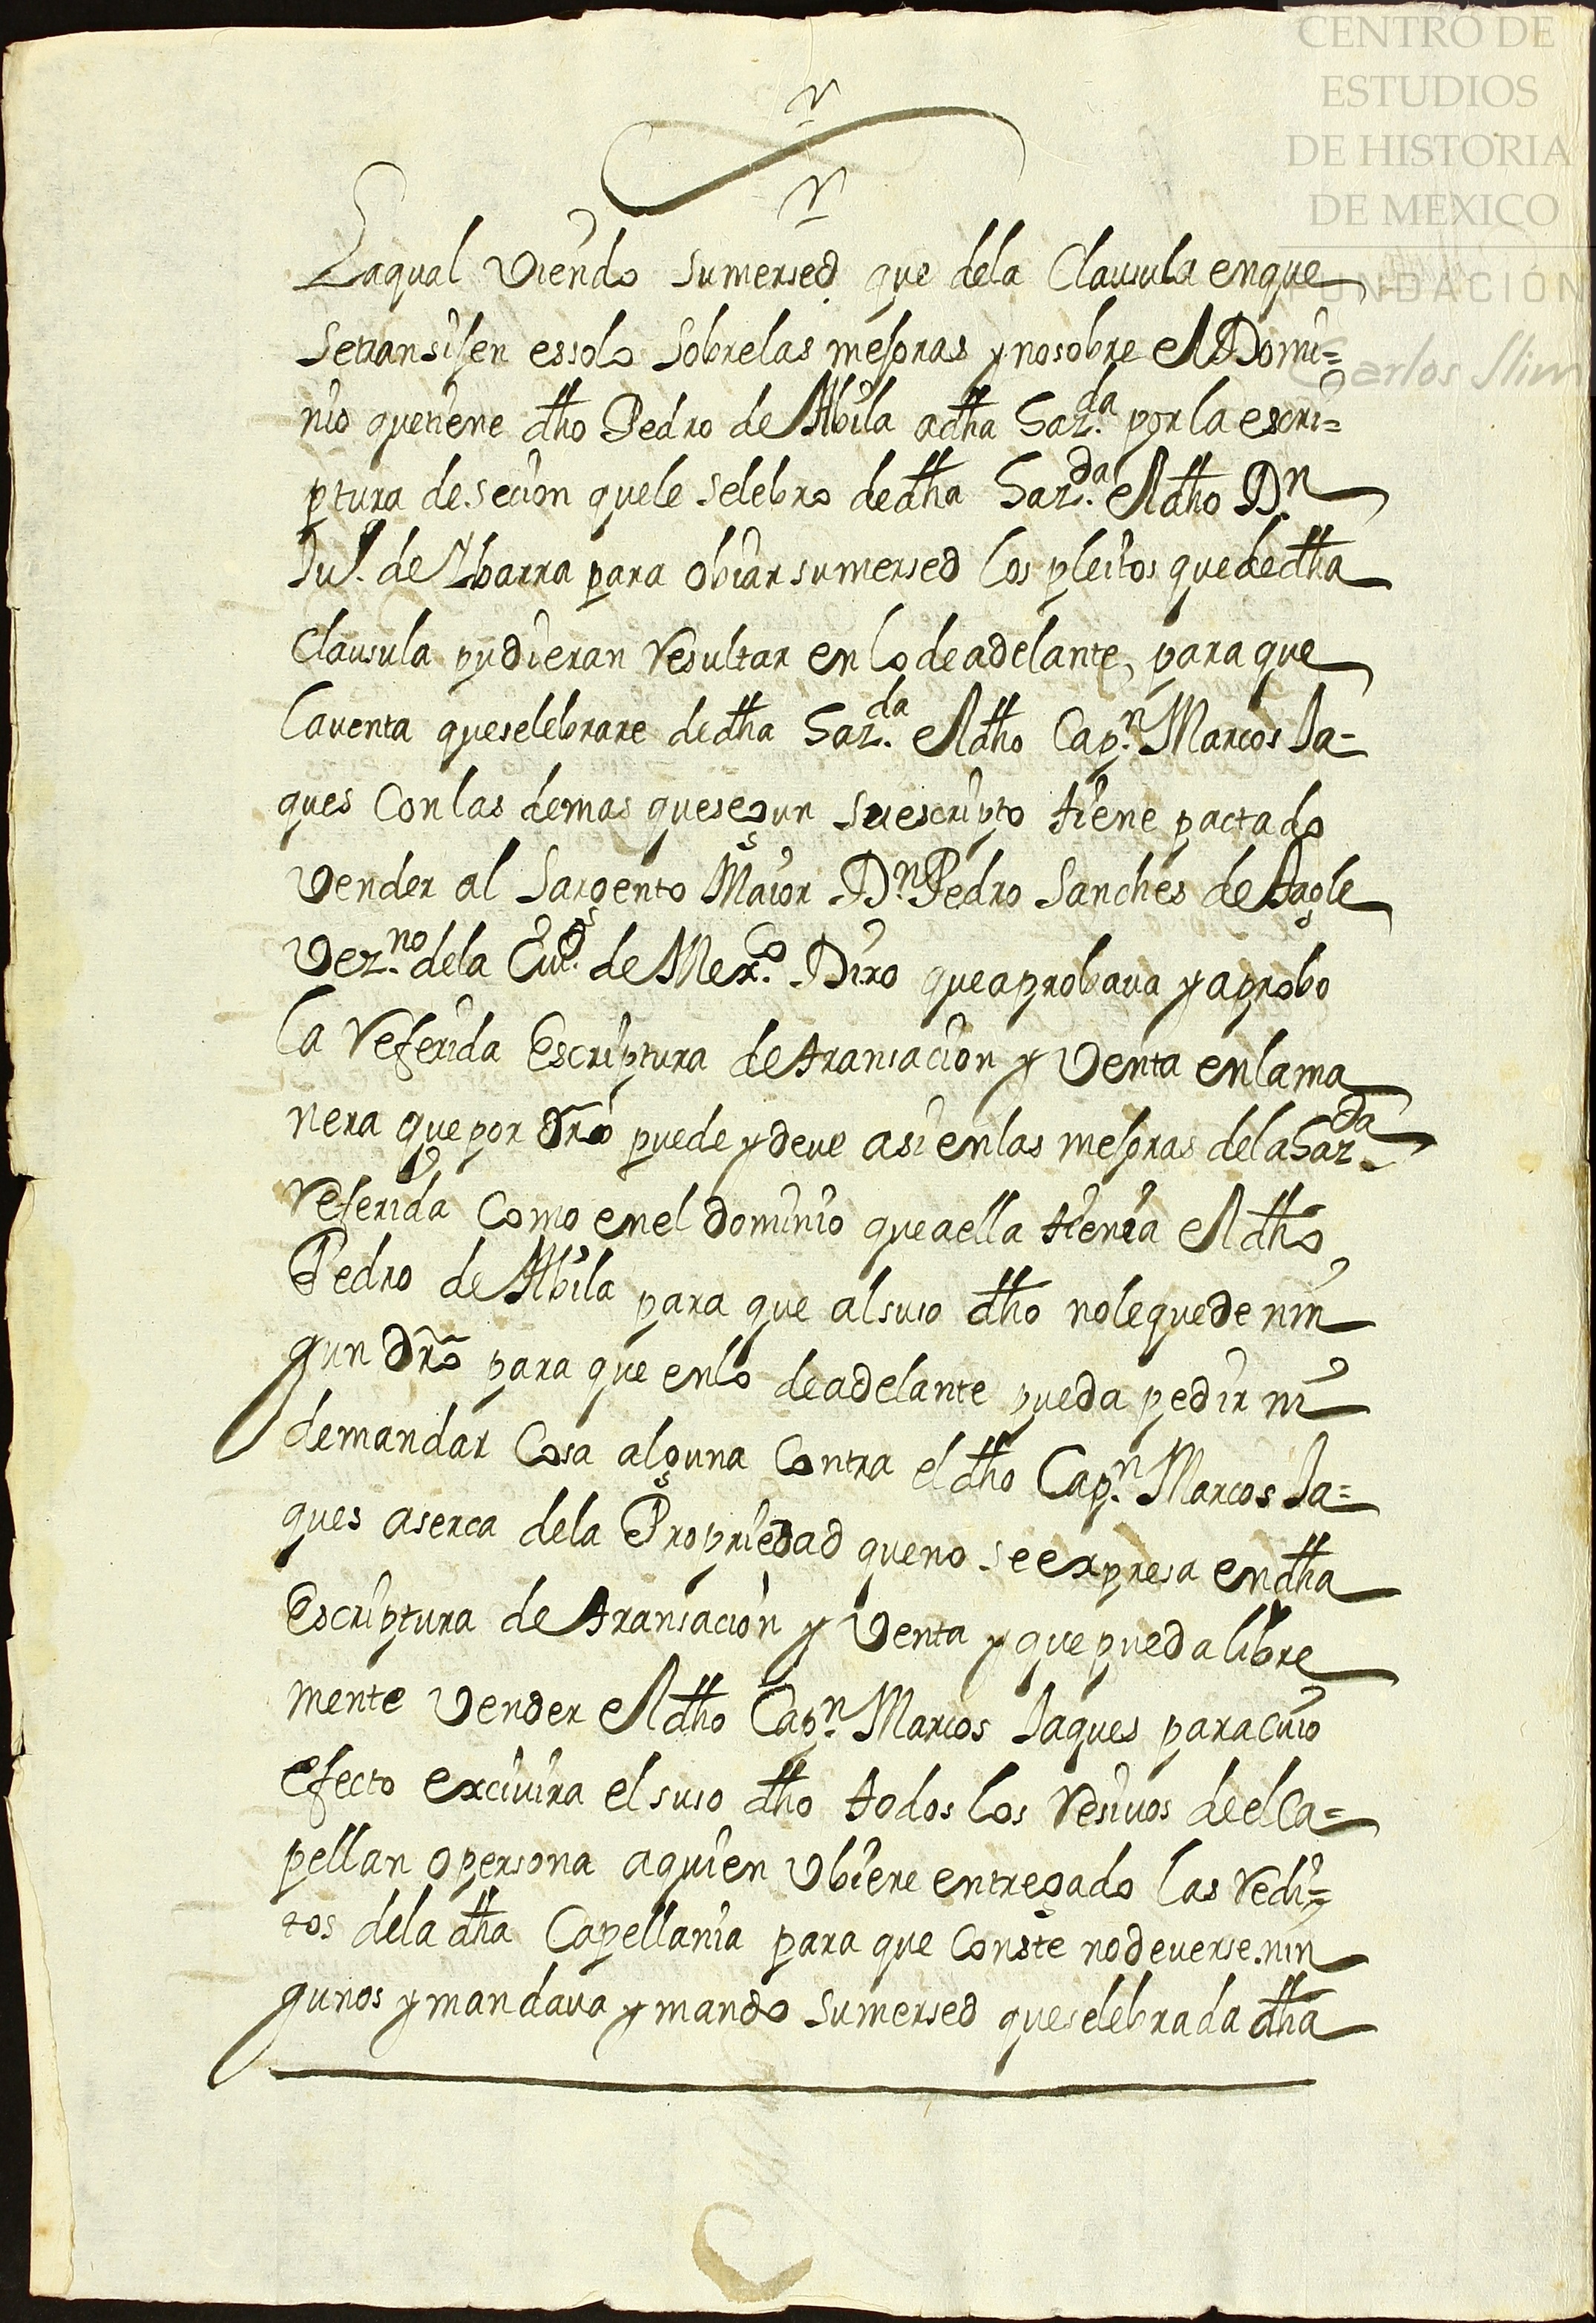 CENTRO DE
ESTUDIOS
DE HISTORIA
DE MEXICO
FUNDACIÓN
Carlos Slim
Laqual viendo sumersed que dela Clausula enque
setransijen essolo sobrelas mejoras y nosobre el Domi=
nio quetiene dho Pedro de Abila adha Haz.da por la escri=
ptura de secion quele selebro dedha Haz.da el dho Dn
Ju.o de Ybarra para obiar sumersed los pleitos quededha
Clausula pudieran resultar en lo deadelante, para que
la uenta queselebrare dedha Haz.da el dho Cap.n Marcos Ja=
ques con las demas quesegun suescripto tiene pactado
vender al Sargento Maior D.n Pedro Sanches de Tagle
Vez.no dela Ciu.d de Mex.co Dixo queaprobaua y aprobo
la referida Escriptura de transacion y venta enlama
nera que por dr̃o puede y deue asi enlas mejoras dela Haz.da
referida como enel dominio queaella tienia el dho
Pedro de Abila para que alsuso dho nolequede nin
gun dr̃o para que enlo deadelante pueda pedir ni
demandar cosa alguna contra el dho Cap.n Marcos Ja=
ques aserca dela Propriedad queno seexpresa endha
Escriptura de transacion y venta y que pueda libre
mente vender el dho Cap.n Marcos Jaques paracuio
efecto excivira el suso dho todos los resiuos deel Ca=
pellan opersona aquien Vbiere entregado las redi=
tos dela dha Capellania para que conste nodeuerse nin
gunos y mandaua y mando sumersed queselebrada dha